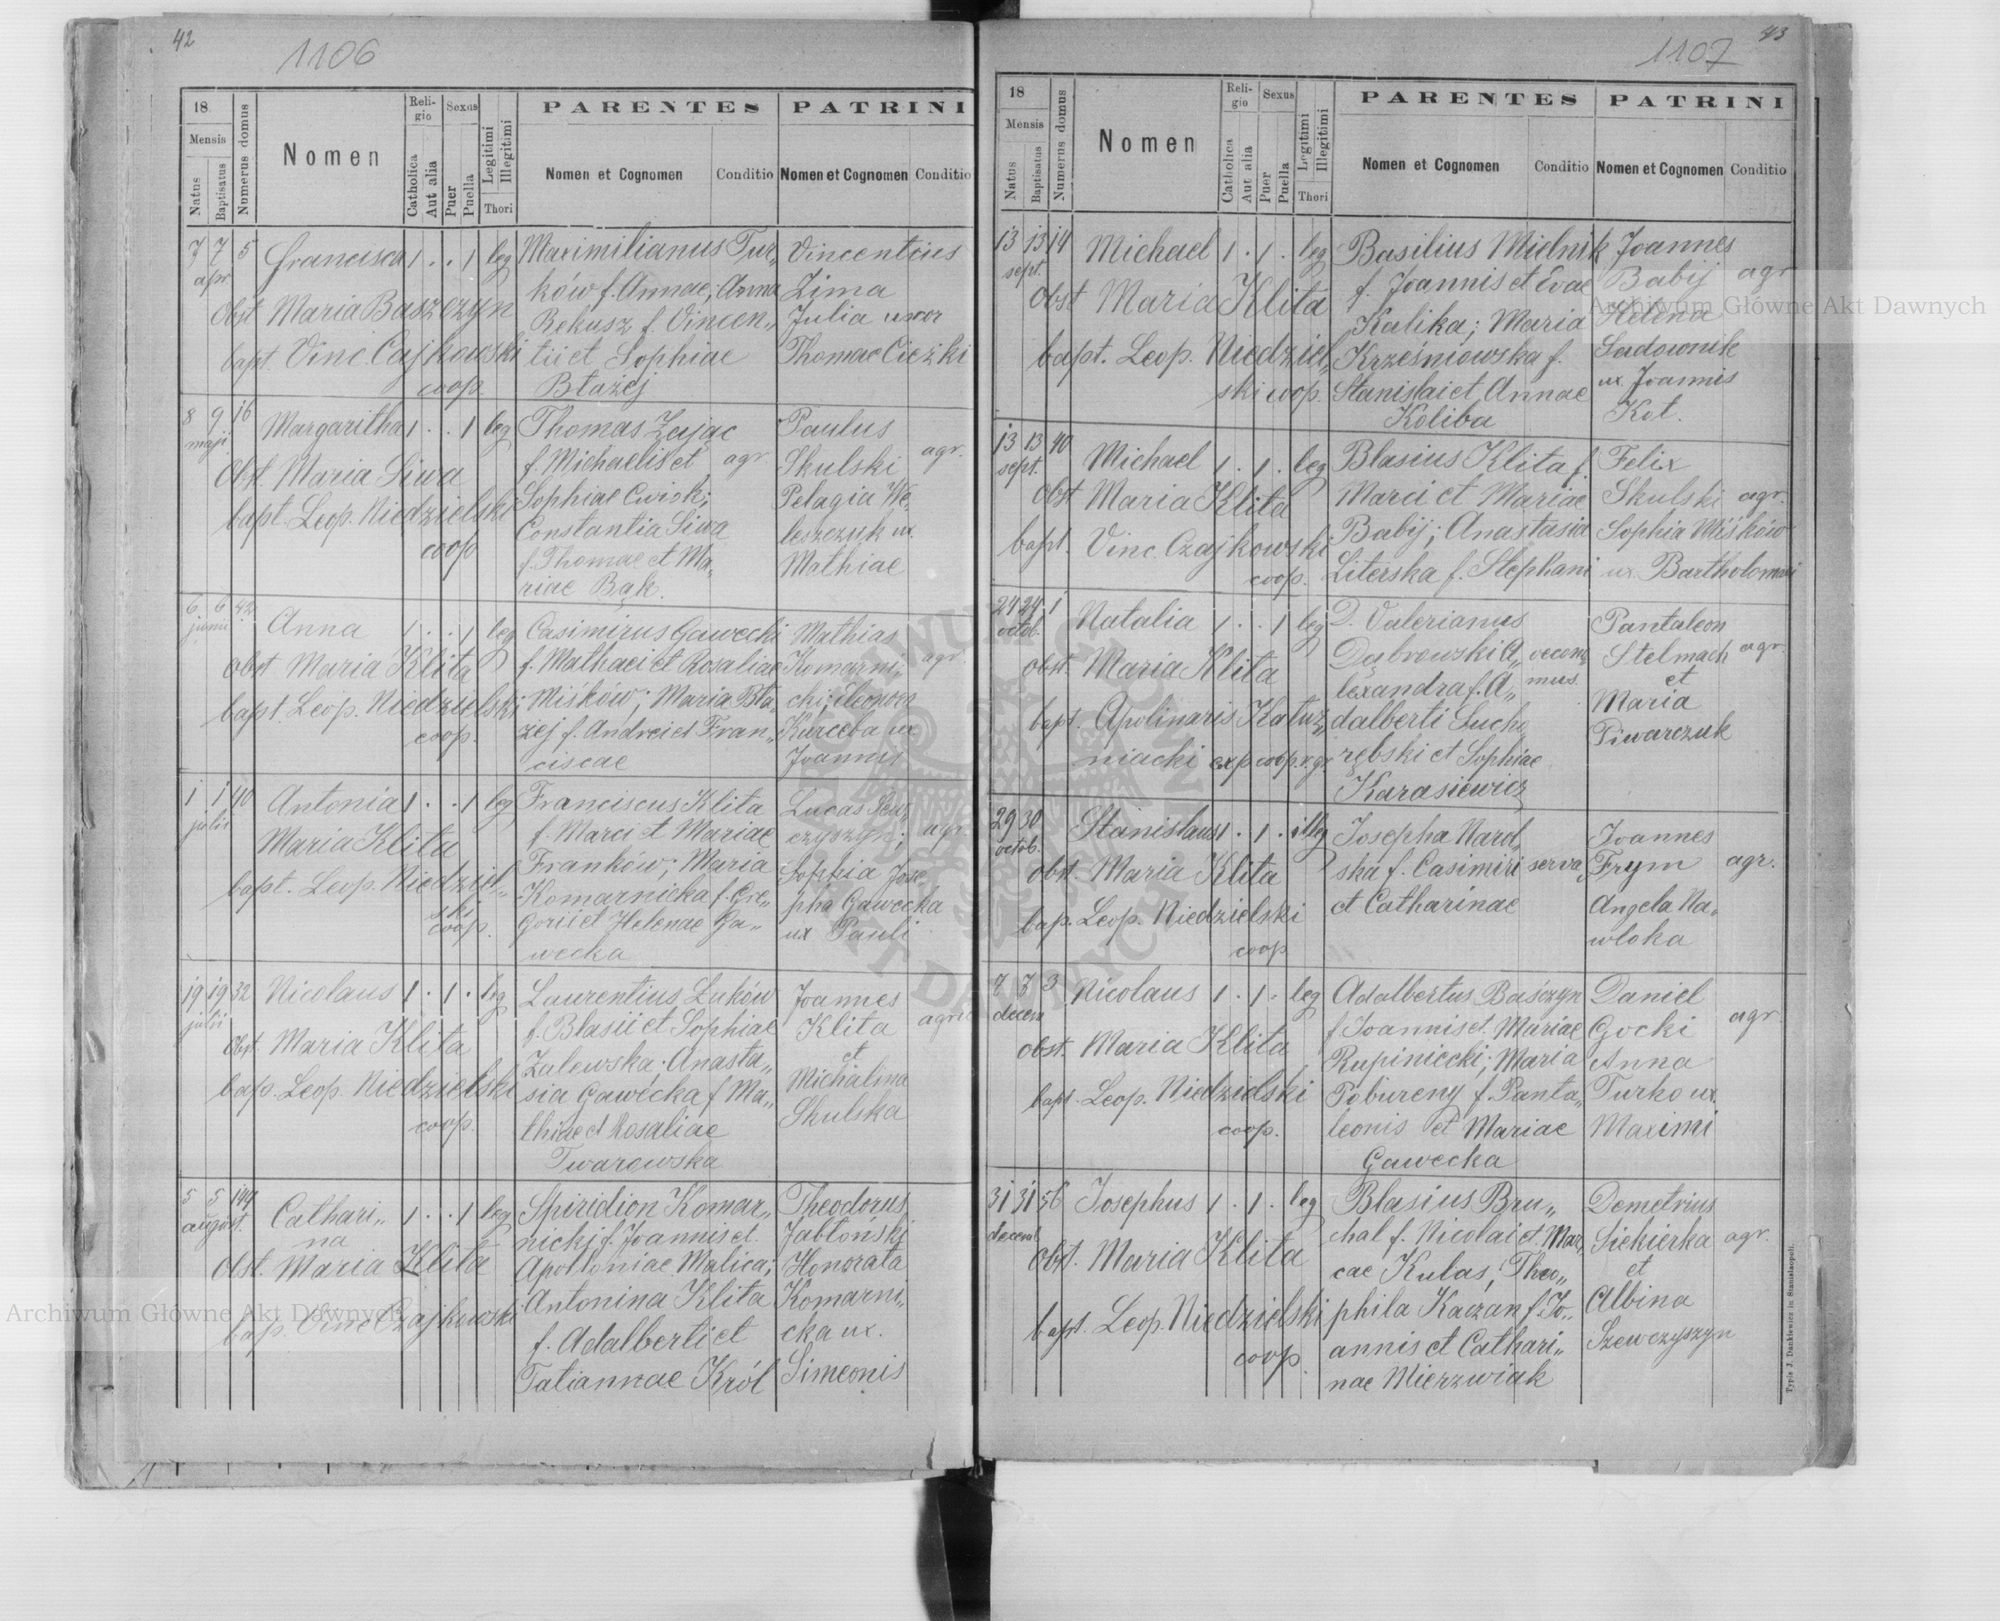 42
1106
18
Mensis
Natus
Baptisatus
Numerus domus
Nomen
Religio
Catholica
Aut alia
Sexus
Puer
Puella
Legitimi
Illegitimi
Thori
PARENTES
Nomen et Cognomen
Conditio
PATRINI
Nomen et Cognomen
Conditio
7 7 5 Francisca 1 . . 1 leg Maximilianus Tur„ Vincentius
apr ków f. Annae; Anna Zima
Obst Maria Baszczyn Rekusz f. Vincen„ Julia uxor
bapt. Vinc. Czajkowski tii et Sophiae Thomae Ciczki
coop. Błażej
8 9 16 Margaritha 1 . . 1 leg Thomas Zając Paulus
maji f. Michaelis et agr Skulski agr.
Obst. Maria Siwa Sophiae Cwiok; Pelagia We„
bapt. Leop. Niedzielski Constantia Siwa leszczyk ux.
coop f. Thomae et Ma„ Mathiae
riae Bąk.
6 6 42 Anna 1 . . 1 leg Casimirus Gawecki Mathias
junii f. Mathaei et Rosaliae Komarni„ agr.
obst Maria Klita Miśków; Maria Bła„ cki; Eleonora
bapt. Leop. Niedzielski zej f. Andrei et Fran„ Kurceba ux
coop. ciscae Joannis
1 1 10 Antonia 1 . . 1 leg Franciscus Klita Lucas
julii f. Marci et Mariae czyszyn; agr
Maria Klita Franków; Maria Sophia Jose„
bapt. Leop. Niedziel„ Komarnicka f. Gre„ pha Gawecka
ski gorii et Helenae Ga„ ux Pauli
coop. wecka
19 19 32 Nicolaus 1 . 1 . leg Laurentius Łuków Joannes
julii f. Blasii et Sophiae Klita agric
obst. Maria Klita Zalewska; Anasta„ et
bap. Leop. Niedzielski sia Gawecka f Ma„ Michalina
coop. thiae et Rosaliae Skulska
Twarowska
5 5 149 Cathari„ 1 . . 1 leg Spiridion Komar„ Theodorus
august. na nicki f. Joannis et Jabłoński
obst. Maria Klita Apolloniae Malica; Honorata
bap. Vinc Czajkowski Antonina Klita Komarni„
f. Adalberti et cka ux.
Tatiannae Król Simeonis
43
1107
18
Mensis
Natus
Baptisatus
Numerus domus
Nomen
Religio
Catholica
Aut alia
Sexus
Puer
Puella
Legitimi
Illegitimi
Thori
PARENTES
Nomen et Cognomen
Conditio
PATRINI
Nomen et Cognomen
Conditio
13 13 14 Michael 1 . 1 . leg Basilius Mielnik Joannes
sept. f. Joannis et Evae Babij agr
Obst Maria Klita Kalika; Maria Helena
bapt. Leop. Niedziel„ Krześniowska f. Sadownik
ski coop. Stanislai et Annae ux. Joannis
Koliba Kot.
13 13 40 Michael 1 . 1 . leg Blasius Klita f. Felix
sept. Marci et Mariae Skulski agr.
Obst Maria Klita Babij; Anastasia Sophia Miśków
bapt. Vinc. Czajkowski Literska f. Stephani ux. Bartholomaei
coop.
24 24 1 Natalia 1 . . 1 leg D. Valerianus Pantaleon
octob. Dąbrowski A„ oecono„ Stelmach agr.
obst. Maria Klita lexandra f. A„ mus. et
bapt. Apolinaris Katuz„ dalberti Sucho Maria
niacki exp coop r. gr. rębski et Sophiae Piwarczuk
Karasiewicz
29 30 Stanislaus 1 . 1 . illeg Josepha Narol„ Joannes
octob. ska f. Casimiri serva Frym agr.
obst. Maria Klita et Catharinae Angela Na„
bap. Leop. Niedzielski wloka
coop
7 7 3 Nicolaus 1 . 1 . leg Adalbertus Baśczyn Daniel
decem f. Joannis et Mariae Gocki agr
obst. Maria Klita Rupiniecki; Maria Anna
bapt. Leop. Niedzielski Pobureny f. Panta„ Turko ux.
coop. leonis et Mariae Maximi
Gawecka
31 31 56 Josephus 1 . 1 . leg Blasius Bru„ Demetrius
decemb chal f. Nicolai et Mar„ Siekierka agr.
Obst. Maria Klita cae Kulas; Theo„ et
bapt. Leop. Niedzielski phila Kaczan f. Jo„ Albina
coop. annis et Cathari„ Szewczyszyn
nae Mierzwiak
Typis J. Dankiewicz in Stanislaopoli.
Archiwum Główne Akt Dawnych
Archiwum Główne Akt Dawnych